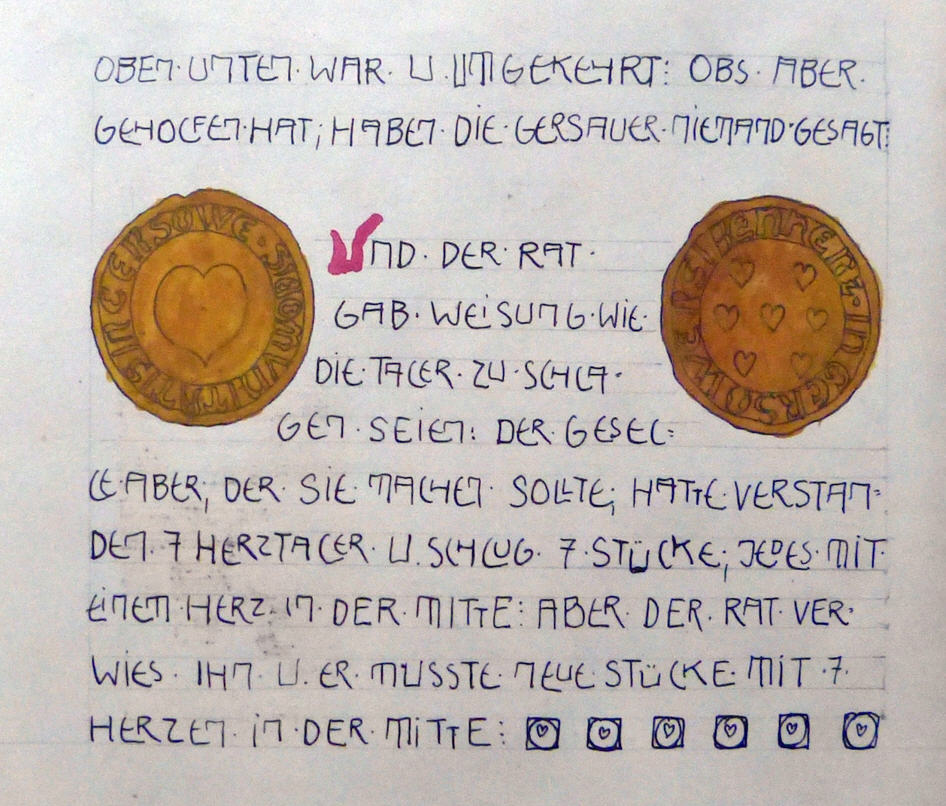 OBEN·UNTEN·WAR·U.UMGEKEHRT: OBS·ABER·
GEHOLFEN·HAT; HABEN·DIE·GERSAUER·NIEMAND·GESAGT:
UND·DER·RAT·
GAB·WEISUNG·WIE·
DIE·TALER·ZU·SCHLA·
GEN·SEIEN: DER·GESEL=
LE·ABER; DER·SIE·MACHEN·SOLLTE; HATTE·VERSTAN=
DEN·7 HERZTALER·U.SCHLUG·7·STÜCKE; JEDES·MIT
EINEM·HERZ·IN·DER·MITTE: ABER·DER·RAT·VER·
WIES·IHN·U.ER·MUSSTE·NEUE·STÜCKE·MIT·7·
HERZEN·IN·DER·MITTE: